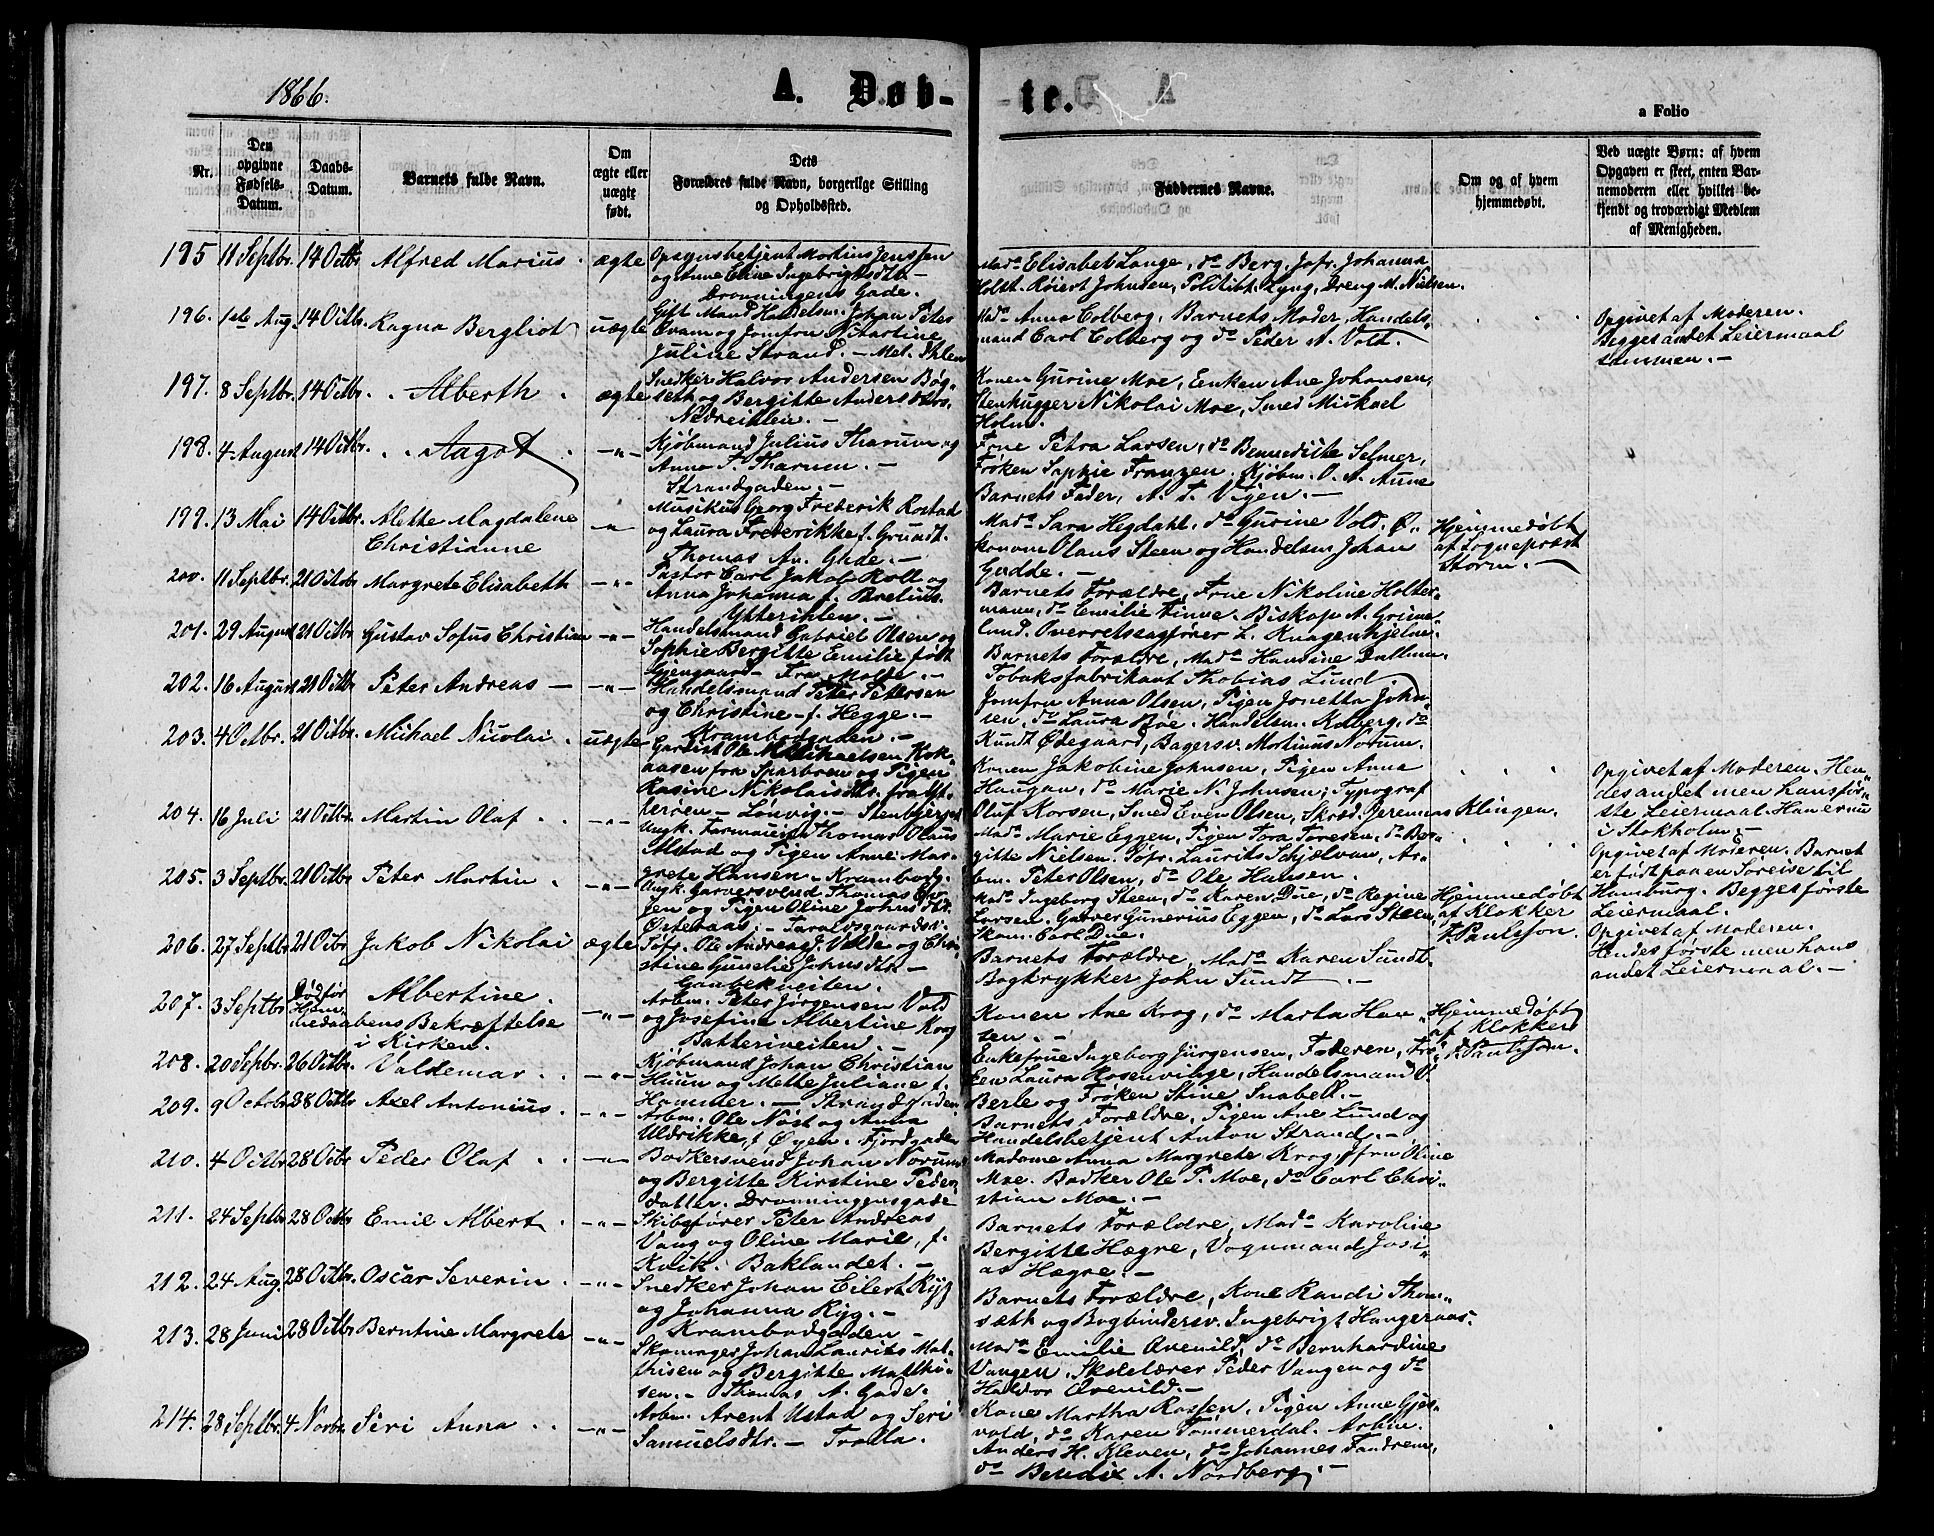 1866.
A. Døb-
te.
a Folio
Nr.
Den opgivne Fødsels-Datum.
Daabs-Datum.
Barnets fulde Navn.
Om ægte eller uægte født.
Dets Forældres fulde Navn, borgerlige Stilling og Opholdssted.
Faddernes Navne.
Om og af hvem hjemmedøbt.
Ved uægte Børn: af hvem Opgaven er skeet, enten Barnemoderen eller hvilket bekjendt og troværdigt Medlem af Menigheden.
195 11 Septbr. 14 Octbr Alfred Marius. ægte
Opsynsbetjent Mortinus Jenssen
og Anne Eline Ingebrigtsdtr. —
Dronningens Gade.
Mad. Elisabet Lange, do Berg. Jofr. Johanna
Holst. Røiert Johnsen, Politibt. Lyng, Dreng M. Nielsen.
196. 1ste Aug. 14 Octbr. Ragna Bergliot uægte
Gift Mand Handelsm. Johan Peter
Svam og Jomfru N. Martine
Juline Strand. — Mel. Ihlen
Mad. Anna Colberg. Barnets Moder, Handels-
mand Carl Colberg og do Peder A. Vold.
Opgivet af Moderen.
Begges andet Leiermaal
sammen. —
197. 8 Septbr. 14 Octbr. Alberth ægte
Snedker Halvor Andersen Bøg-
seth og Bergitte Andersdtr.
Nedreihlen. —
Konen Gurine Moe, Enken Ane Johansen,
Stenhugger Nikolai Moe, Smed Mickael
Holm.
198. 4 August 14 Octbr. Aagot —"—
Kjøbmand Julius Tharum og
Anna T. Tharum. —
Strandgaden. —
Frue Petra Larsen, do Bennedikte Selmer,
Frøken Sophie Franzen. Kjøbm. O. A. Aune
Barnets Fader, A. T. Vigen. —
199. 13 Mai 14 Octbr. Alette Magdalene —"—
Christianne
Musikus Georg Frederik Rostad
og Laura Frederikke f. Grundt.
Thomas An. Gade. —
Mad. Sara Hegdahl, do Gurine Vold. Ø-
konom Olaus Steen og Handelsm Johan
Gadde. —
Hjemmedøbt
af Sognepræst
Storm. —
200. 11 Septbr. 21 Octobr Margrete Elisabeth —"—
Pastor Carl Jakob Roll og
Anna Johanna f. Brelius.
Ytterihlen. —
Barnets Forældre, Frue Nikoline Holter-
mann, do Emilie Finne, Biskop A. Grime-
lund. Overretssagfører L. Knagenhjelm.
201. 29 August 21 Octbr Gustav Sofus Christian —"—
Handelsmand Gabriel Olsen og
Sophie Bergitte Emilie født
Gjengaard — Fra Molde. —
Barnets Forældre, Mad. Handine Dallum.
Tobaksfabrikant Thobias Lund.
202. 16 August 21 Octbr Peter Andreas — —"—
Handelsmand Peter Petersen
og Christine — f. Hegge. —
Krambodgaden. —
Jomfru Anna Olsen, Pigen Jonetta John-
sen, do Laura Bøe. Handelsm. Kolberg, do
Kundt Ødegaard, Bagersv. Mortinus Norum.
203. 4 Octbr. 21 Octbr Michael Nicolai. uægte
Gardist Ole Michaelsen Kok-
aasen fra Sparboen og Pigen
Rasine Nikolaisdtr. fra Yt-
terøen — Lønvig. — Stenbjerget
Konen Jakobine Johnsen, Pigen Anna
Haugan, do Marie N. Johnsen; Typograf
Oluf Korsen, Smed Even Olsen, Skræd. Jeremias Klingen.
Opgivet af Moderen. Hen-
des andet men hans før-
ste Leiermaal. Han er nu
i Stokholm. —
204. 16 Juli 21 Octbr Martin Olaf —"—
Ungk. Farmaceut Thomas Olaus
Alstad og Pigen Anne Mar-
grete Hansen. Krambodg.
Mad. Marie Eggen, Pigen Tora Toresen, do Ber-
gitte Nielsen. Søfr. Laurits Schjælvan, Ar-
bm. Peter Olsen, do Ole Hansen.
Opgivet af Moderen. Barnet
er født paa en Søreise til
Hamburg. Begges første
Leiermaal.
205. 3 Septbr. 21 Octbr Peter Martin. —"—
Ungk. Garversvend Thomas
og Pigen Oline Johnsdtr.
Østeraas. — Taraldsgaardsv.
Mad. Ingeborg Steen, do Karen Due, do Regine
Larsen. Garver Gunerius Eggen, do Lars Steen,
Skom. Carl Due.
Hjemmedøbt
af Klokker
F. Paulsson.
Opgivet af Moderen.
Hendes første men hans
andet Leiermaal. —
206. 27 Septbr 21 Octbr Jakob Nikolai ægte
Søfr. Ole Andreas J. Valde og Chri-
stine Gunelie Johnsdtr. —
Gaubekveiten.
Barnets Forældre, Mad. Karen Sundt
Bogtrykker John Sundt. —
207. 3 Septbr Død før Hjem- Albertine. —"—
medaabens Bekræftelse
i Kirken.
Arbm. Peter Jörgensen Vold
og Josefine Albertine Krog
Batteriveiten. —
Konen Ane Krog, do Marta Han-
sen. —
Hjemmedøbt
af Klokker
F. Paulsson.
208. 20 Septbr. 26 Octbr. Valdemar. —"—
Kjøbmand Johan Christian
Huun og Mette Juliane f.
Hamster. — Strandgaden.
Enkefrue Ingeborg Jürgensen, Faderen, Frø-
ken Laura Rosenvinge, Handelsmand O.
Berle og Frøken Stine Snabell. —
209. 9 Octobr 28 Octbr Axel Antonius. —"—
Arbm. Ole Nøst og Anna
Uldrikke, f. Øyen. Fjordgaden
Barnets Forældre, Pigen Ane Lund og
Handelsbetjent Anton Strand. —
210. 4 Octbr 28 Octbr Peder Olaf —"—
Bødkersvend Johan Norum
og Bergitte Kirstine Peder-
datter. Dronningensgade
Madame Anna Margrete Krog, Jfru Oline
Moe. Bødker Ole P. Moe, do Carl Chri-
stian Moe. —
211. 24 Septbr 28 Octbr Emil Albert. —"—
Skibsfører Peter Andreas
Vang og Oline Marie, f.
Kvik. Baklandet. —
Barnets Forældre, Mad. Karoline
Bergitte Hægre, Vognmand Josi-
as Hægre. —
212. 24 Aug. 28 Octbr. Oscar Severin. —"—
Snedker Johan Eilert Ryg
og Johanna Ryg. —
Krambodgaden —
Barnets Forældre, Kone Randi Thom-
sæth og Bogbindersv. Ingebrigt Haugeraas.
213. 28 Juni 28 Octbr Berntine Margrete —"—
Skomager Johan Laurits Mat-
thisen og Bergitte Matthi-
sen. — Thomas A. Gade.
Mad. Emilie Qvenild, do Bernhardine
Vangen, Skolelærer Peder Vangen og do
Haldor Qvenild. —
214. 28 Septbr. 4 Novbr. Siri Anna —"—
Arbm. Arent Ustad og Seri
Samuelsdtr. — Trolla.
Kone Martha Rossen, Pigen Anne Gjes-
vold, do Karen Tømmerdal. Arbm.
Anders H. Kleven, do Johannes Tandrem,
do Bendix A. Nordberg. —